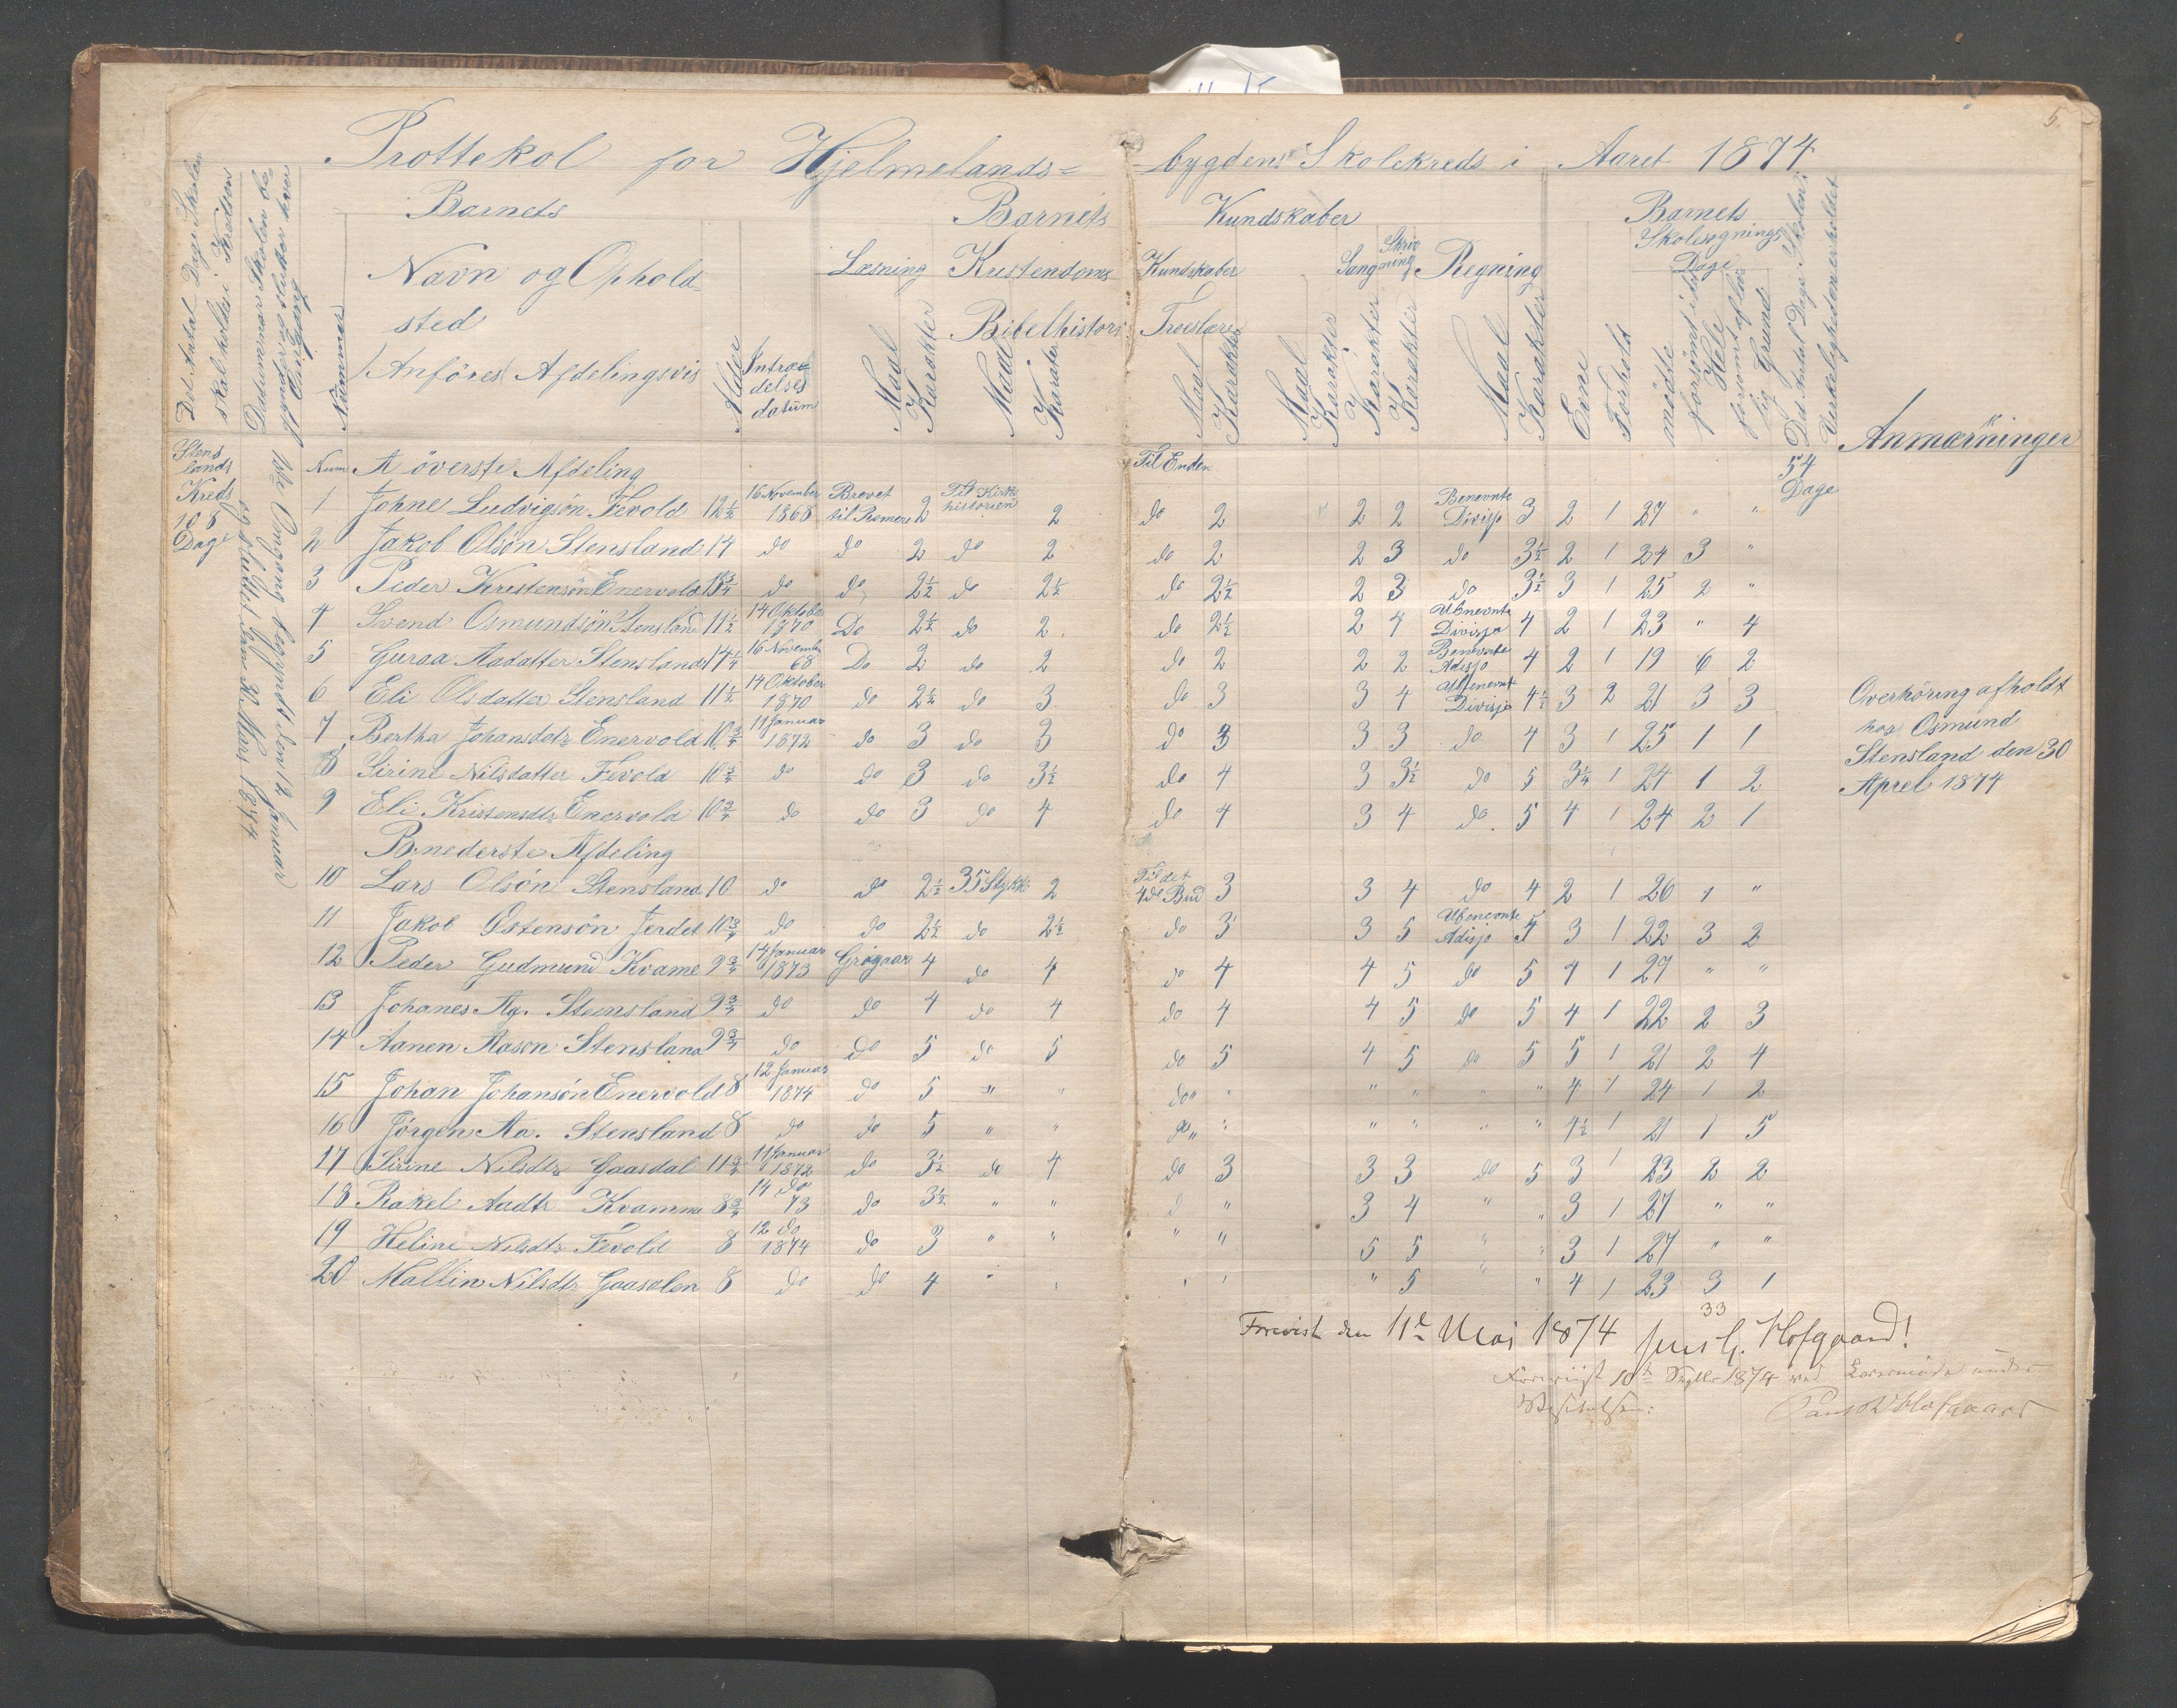 5.
Prottekol for Hjelmelands= bygdens Skolekreds i Aaret 1874.
Det Antal Dage Skolen skal holdes i Kredsen
Datummer Skolen be
gynder og slutter hver Omgang
Nummer
Barnets
Navn og Ophold-
sted
(Anföres) Afdelingsvis
Alder
Intræ-
delses
datum
Barnets Kundskaber
Læsning
Maal
Karakter
Kristendoms Kundskaber
Bibelhistori:
Maal
Karakter
Troeslære
Maal
Karakter
Maal
Karakter
Sang
Karakter
Skriv
ning
Karakter
Regning
Maal
Karakter
Evne
Forhold
Barnets
Skolesögnings
Dage
mödte
forsömt i det Hele
forsömt af lov
lig Grund
Det Antal Dage Skolen i
Verkeligheden er holdt
Anmærkninger
Stens
lands
Kreds
108
Dage
1ste Omgang begyndt den 12 Januar
og sluttet den Mars 1874
Num A överste Afdeling Til Enden 54 Dage
1 Johne Ludvigsön Fevold 12½ 16 November 1868 Brevet til Romere 2 Til Kirkehistorien 2 do 2 2 2 Benevnte Divisjo 3 2 1 27 " "
2 Jakob Olsön Stensland 14 do do 2 do 2 do 2 2 3 do 3½ 2 1 24 3 "
3 Peder Kristensön Enervold 13¾ do do 2½ do 2½ do 2½ 2 3 do 3½ 3 1 25 2 "
4 Svend Osmundsön Stensland 11½ 14 Oktober 1870 Do 2½ do 2 do 2½ 2 4 Ubnevnte Divisjo 4 2 1 23 " 4
5 Guraa Aadatter Stensland 14¼ 16 November 68 Do 2 do 2 do 2 2 2 Benevnte Adisjo 4 2 1 19 6 2
6 Eli Olsdatter Stensland 11½ 14 Oktober 1870 do 2½ do 3 do 3 3 4 Ubenevnt Divisjo 4½ 3 2 21 3 3
7 Bertha Johansdatr Enervold 10¾ 11 Januar 1872 do 3 do 3 do 3 3 3 do 4 3 1 25 1 1
8 Sirine Nilsdatter Fevold 10¾ do do 3 do 3½ do 4 3 3½ do 5 3¼ 1 24 1 2
9 Eli Kristensdtr Enervold 10¾ do do 3 do 4 do 4 3 4 do 5 4 1 24 2 1
B nederste Afdeling
10 Lars Olsön Stensland 10 do do 2½ 35 Stykke 2 Til det 4de Bud 3 3 4 do 4 2 1 26 1 "
11 Jakob Östensön Jerdet 10¾ do do 2½ do 2½ do 3 3 5 Ubenevnte Adisjo 4 3 1 22 3 2
12 Peder Gudmund Kvame 9¾ 14 Januar 1873 Grögaar 4 do 4 do 4 4 5 do 5 4 1 27 " "
13 Johanes Ag. Stensland 9¾ do do 4 do 4 do 4 4 5 do 5 4 1 22 2 3
14 Aanen Aason Stensland 9¾ do do 5 do 5 do 5 4 5 do 5 5 1 21 2 4
15 Johan Johansön Enervold 8 12 Januar 1874 do 5 " " do " " " " " 4 1 24 1 2
16 Jörgen Aa. Stensland 8 do do 5 " " do " " " " " 4½ 1 21 1 5
17 Sirine Nilsdtr Gaasdal 11¾ 11 Januar 1872 do 3½ do 4 do 3 3 3 do 5 3 1 23 2 2
18 Rakel Aadtr Kvamme 8¾ 14 do 73 do 3½ " " d " 3 4 " " 3 1 27 " "
19 Heline Nilsdtr Fevold 8 12 do 1874 do 3 " " " " 5 5 " " 3 1 27 " "
20 Mallin Nilsdtr Gaasdlen 8 do do 4 " " " " " 5 " " 4 1 23 3 1
33
Overhöring afholdt
hos Osmund
Stensland den 30
Aprel 1874
Forevist den 11te Mai 1874 Jens G. Hofgaard!
Foreviist 10de Septbr 1874 ved Lærermöde under